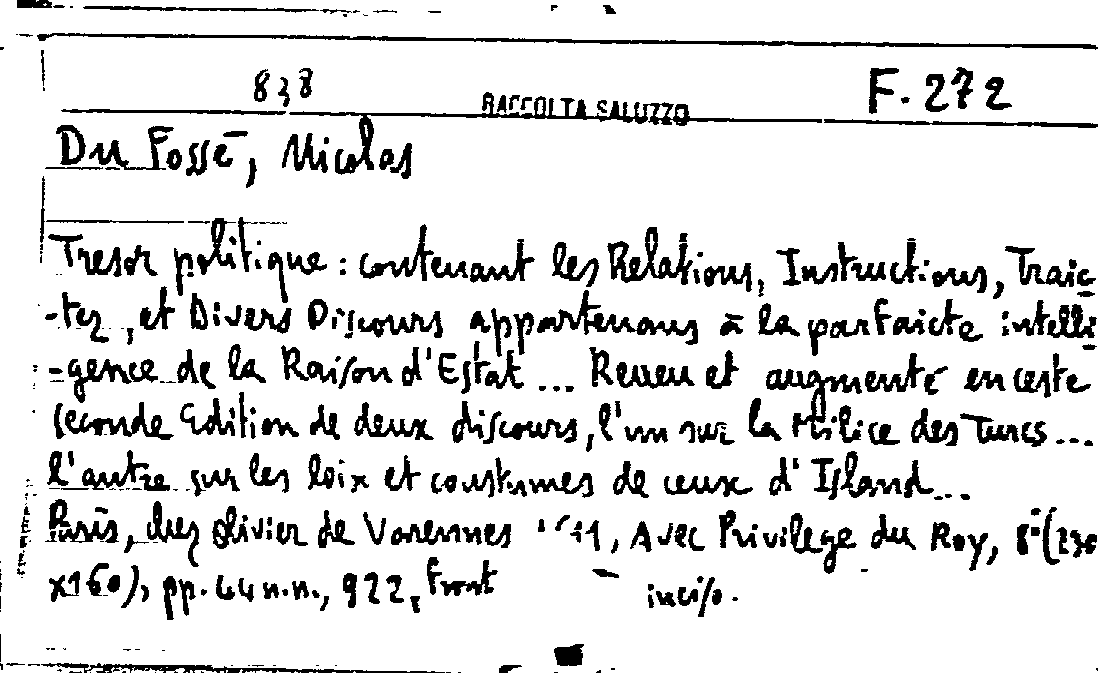 838 RACCOLTA SALUZZO F. 272
Du Fossé, Nicolas
Tresor politique : contenant les Relations, Instructions, Traic
-tez, et Divers Discours appartenans à la parfaicte intelli
-gence de la Raison d'Estat ... Reveu et augmenté en ceste
seconde Edition de deux discours, l'un sur la Milice des Turcs ...
l'autre sur les loix et coustumes de ceux d'Island ...
Paris, chez Olivier de Varennes Avec Privilege du Roy, 8° (230
x160), pp. 44 n.n., 922, front inciso.